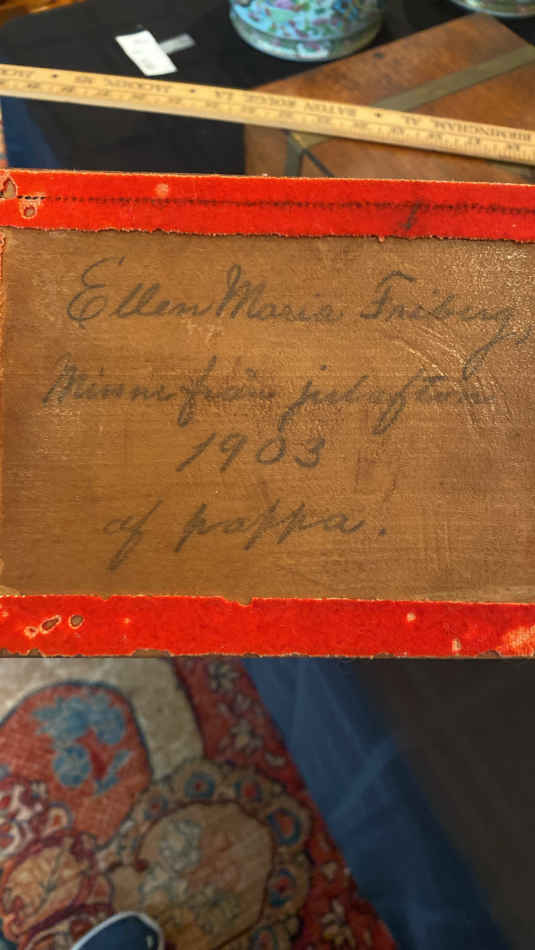 JACKSON, MS • BATON ROUGE, LA • BIRMINGHAM, AL
Ellen Maria Friberg,
Minne från julafton
1903
af pappa.